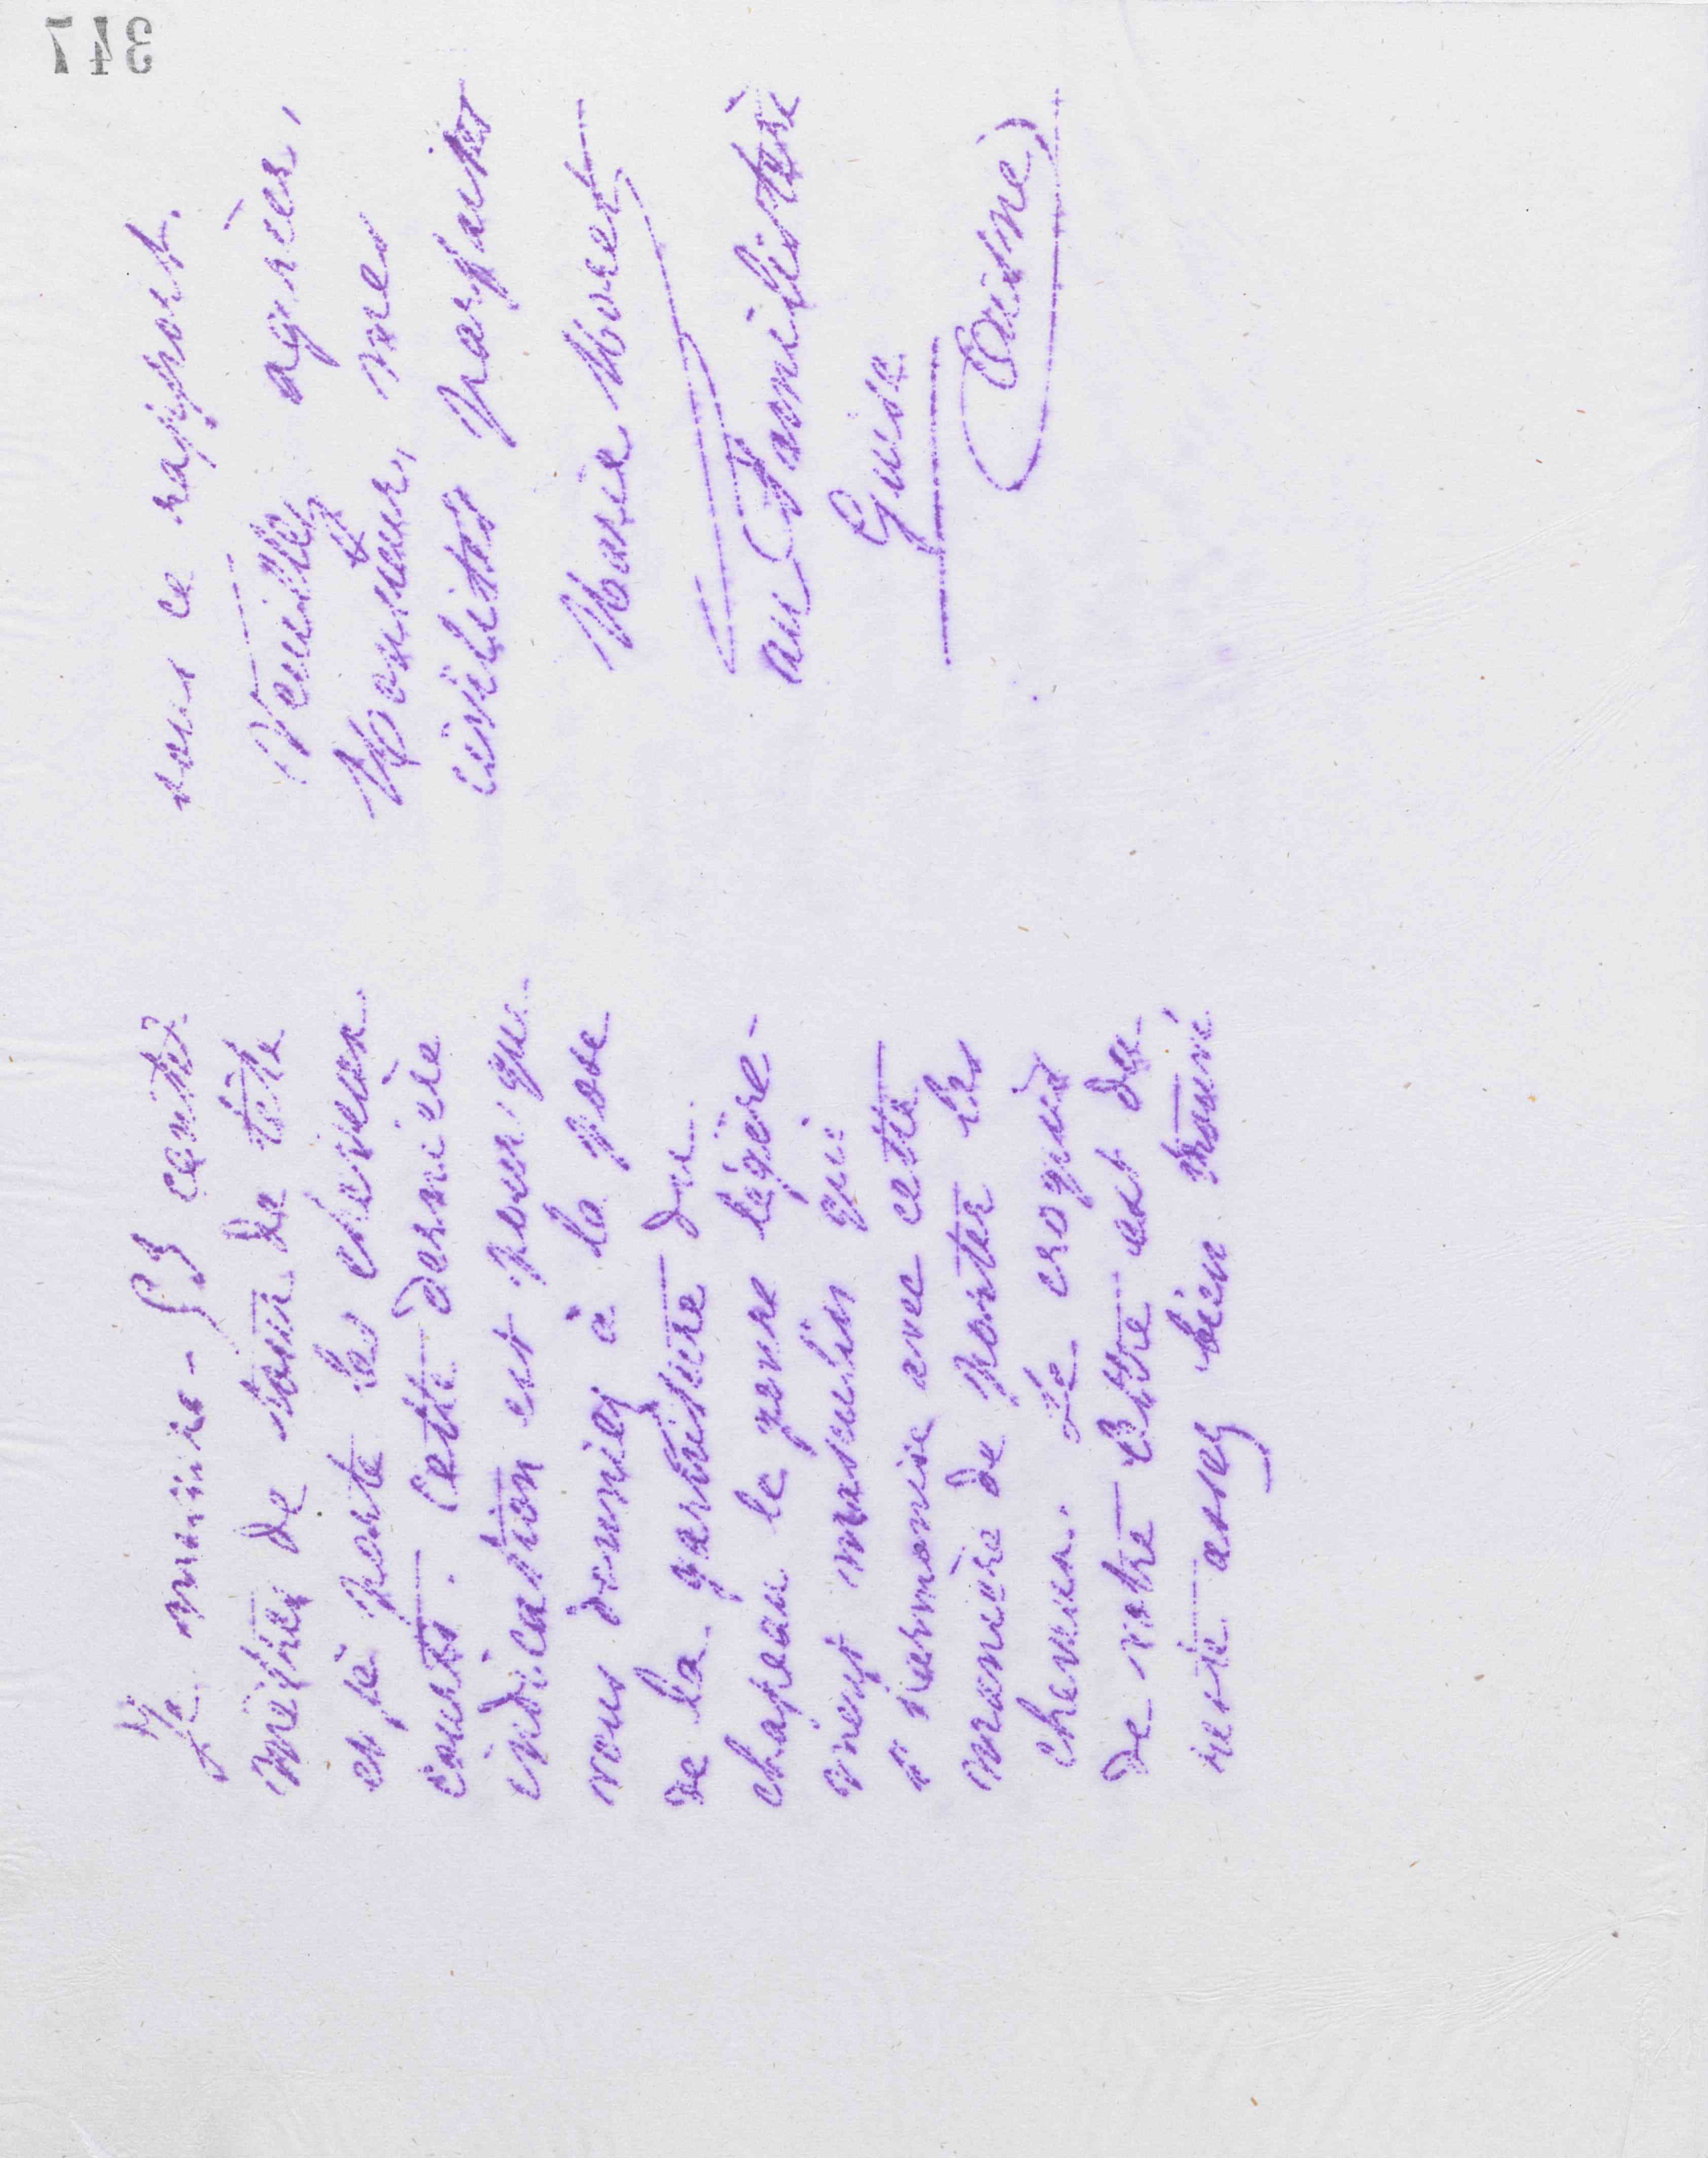 347
Je mesure - 53 centi-
mètres de tour de tête
et je porte les cheveux
courts. Cette dernière
indication est pour que
vous donniez à la pose
de la garniture du
chapeau le genre légère-
ment masculin qui
s'harmonise avec cette
manière de porter les
cheveux. Le croquis
de votre lettre est du
reste assez bien tourné
sous ce rapport.
Veuillez agréer,
Monsieur, mes
civilités parfaites
Marie Moret
au Familistère
Guise
(Aisne)